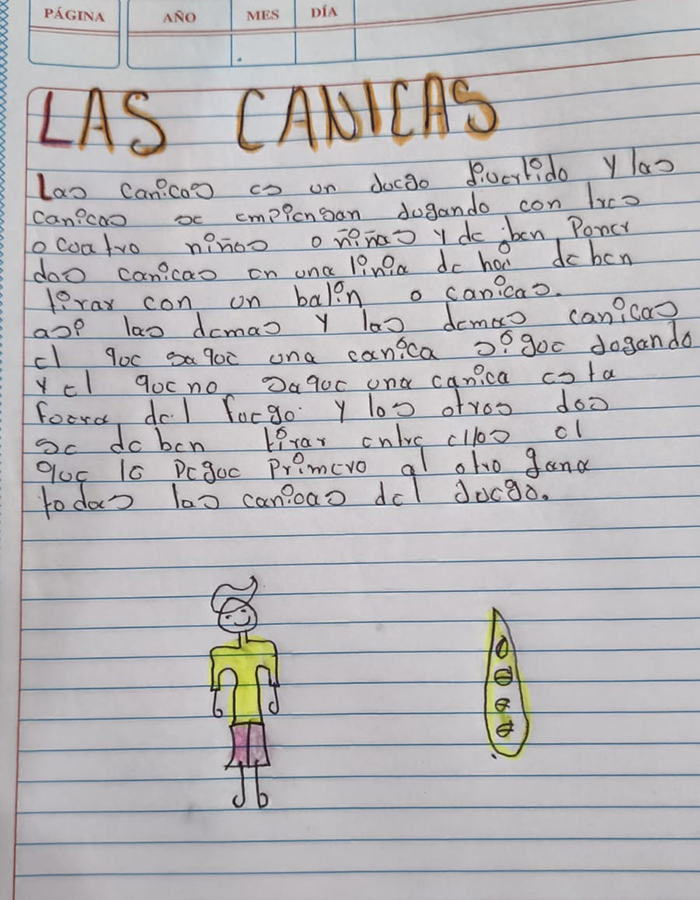 PÁGINA AÑO MES DÍA
LAS CANICAS
Las canicas es un Juego divertido y las
canicas se empiensan Jugando con tres
o cuatro niños o niñas y de ben Poner
dos canicas en una linia de hai de ben
tirar con un balin o canicas.
asi las demas y las demas canicas
el que saque una canica sigue Jogando
y el que no saque una canica esta
fuera del fuego. y los otros dos
se de ben tirar entre ellos el
que le Pegue Primero al otro gana
todas las canicas del Juego.